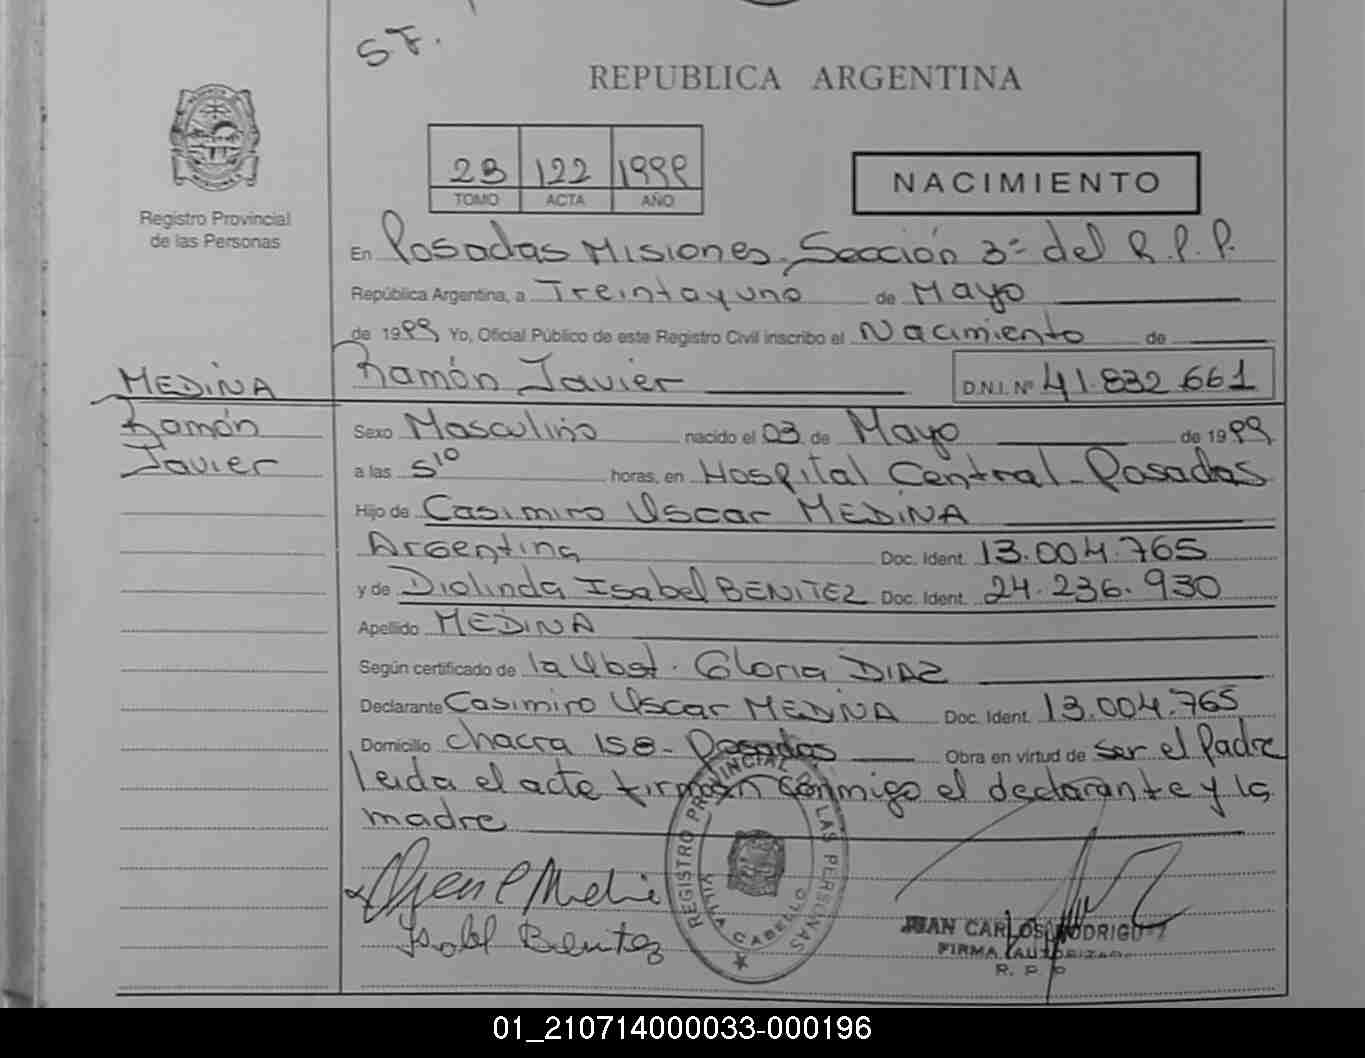 S F.
REPUBLICA ARGENTINA
23 122 1999
TOMO ACTA AÑO
NACIMIENTO
Registro Provincial
de las Personas
En Posadas Misiones. Sección 3ª del R.P.P.
República Argentina, a Treintayuno de Mayo
de 1999 Yo, Oficial Público de este Registro Civil inscribo el Nacimiento de
Ramón Javier D.N.I. Nº 41.832.661
MEDINA
Ramón
Javier
Sexo Masculino nacido el 03 de Mayo de 1999
a las 5¹⁰ horas, en Hospital Central - Posadas
Hijo de Casimiro Oscar MEDINA
Argentina Doc. Ident. 13.004.765
y de Diolinda Isabel BENITEZ Doc. Ident. 24.236.930
Apellido MEDINA
Según certificado de la Obst. Gloria DIAZ
Declarante Casimiro Oscar MEDINA Doc. Ident. 13.004.765
Domicilio chacra 158 - Posadas Obra en virtud de ser el Padre
leida el acta firman conmigo el declarante y la
madre
Isabel Benitez
REGISTRO PROVINCIAL D LAS PERSONAS
VILLA CABELLO
JUAN CARLOS RODRIGUEZ
FIRMA AUTORIZADA
R. P. P.
01_210714000033-000196